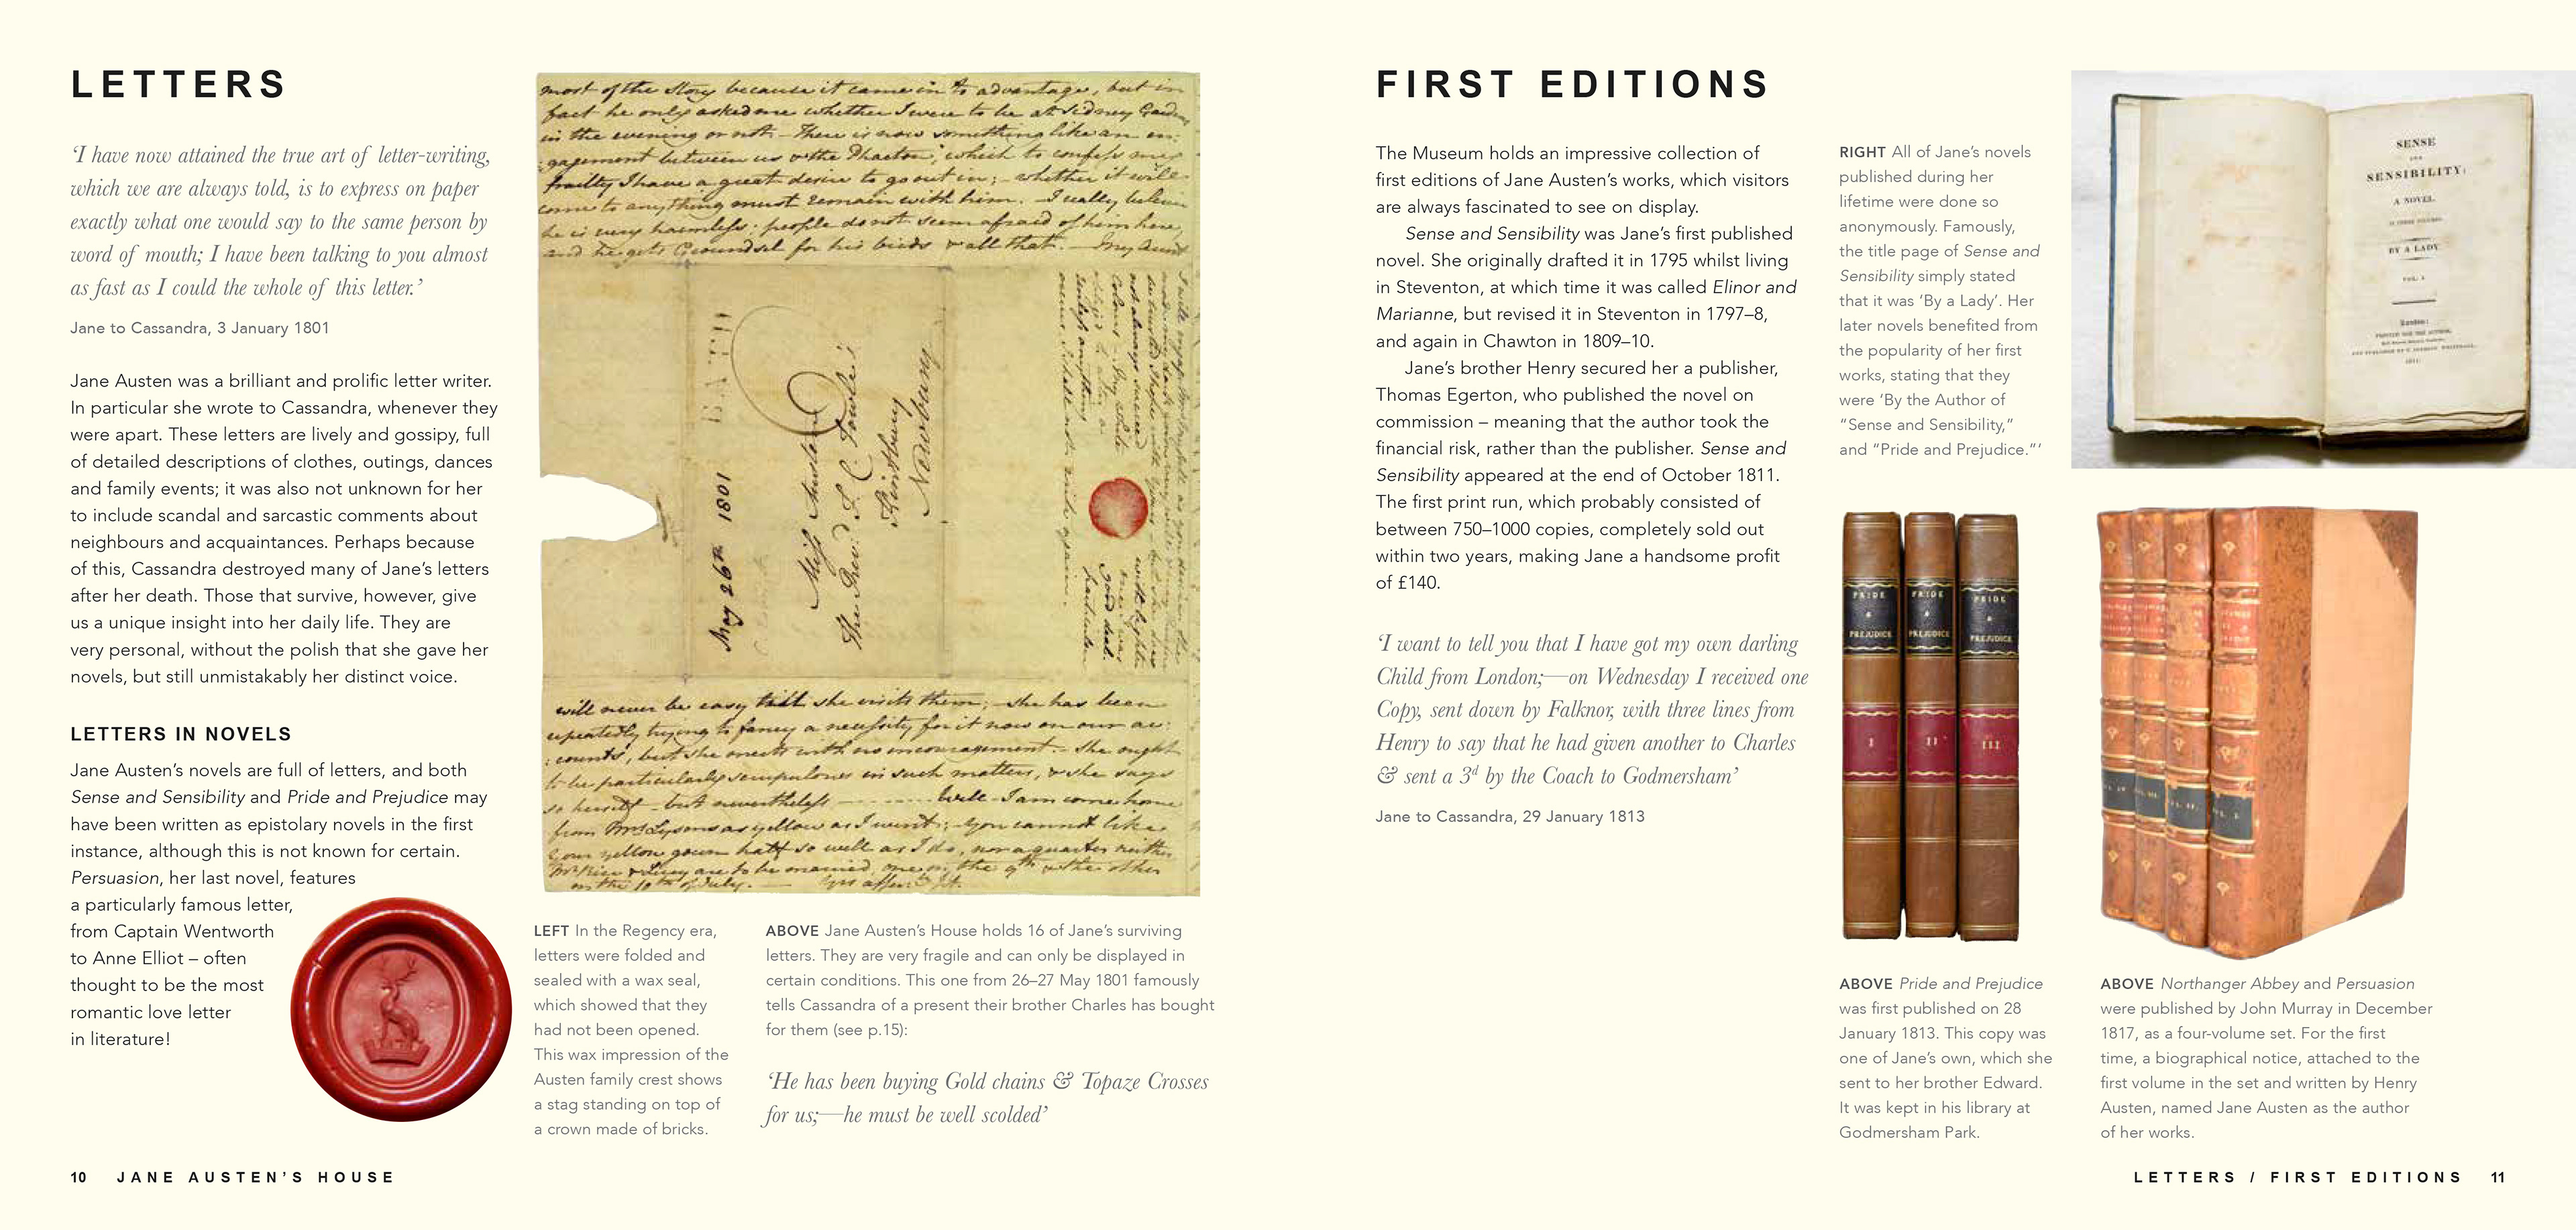 LETTERS
‘I have now attained the true art of letter-writing,
which we are always told, is to express on paper
exactly what one would say to the same person by
word of mouth; I have been talking to you almost
as fast as I could the whole of this letter.’
Jane to Cassandra, 3 January 1801
Jane Austen was a brilliant and prolific letter writer.
In particular she wrote to Cassandra, whenever they
were apart. These letters are lively and gossipy, full
of detailed descriptions of clothes, outings, dances
and family events; it was also not unknown for her
to include scandal and sarcastic comments about
neighbours and acquaintances. Perhaps because
of this, Cassandra destroyed many of Jane’s letters
after her death. Those that survive, however, give
us a unique insight into her daily life. They are
very personal, without the polish that she gave her
novels, but still unmistakably her distinct voice.
LETTERS IN NOVELS
Jane Austen’s novels are full of letters, and both
Sense and Sensibility and Pride and Prejudice may
have been written as epistolary novels in the first
instance, although this is not known for certain.
Persuasion, her last novel, features
a particularly famous letter,
from Captain Wentworth
to Anne Elliot – often
thought to be the most
romantic love letter
in literature!
most of the Story because it came in to advantage, but in
fact he only asked me whether I were to be at Sidney Gardens
in the evening or not. – There is now something like an en-
gagement between us & the Phaeton, which to confess my
frailty I have a great desire to go out in; – whether it will
come to anything must remain with him. – I really believe
he is very harmless; people do not seem afraid of him here,
and he gets Groundsel for his birds & all that. – My Aunt
May 26th 1801
Miss Austen
The Revd. F. C. Fowle's
Kintbury
Newbury
will never be easy till she visits them; – she has been
repeatedly trying to fancy a necessity for it now on our ac:
:counts, but she meets with no encouragement. – She ought
to be particularly scrupulous in such matters, & she says
so herself – but nevertheless – ...... Well – I am come home
from Mrs Lysons as yellow as I went; – You cannot like
your yellow gown half so well as I do, nor a quarter neither.
Mr Rice & Lucy are to be married, one on the 9th & the other
on the 10th of July. – Yrs affec:ly JA.
LEFT In the Regency era,
letters were folded and
sealed with a wax seal,
which showed that they
had not been opened.
This wax impression of the
Austen family crest shows
a stag standing on top of
a crown made of bricks.
ABOVE Jane Austen’s House holds 16 of Jane’s surviving
letters. They are very fragile and can only be displayed in
certain conditions. This one from 26–27 May 1801 famously
tells Cassandra of a present their brother Charles has bought
for them (see p.15):
‘He has been buying Gold chains & Topaze Crosses
for us;—he must be well scolded’
10 JANE AUSTEN’S HOUSE
FIRST EDITIONS
The Museum holds an impressive collection of
first editions of Jane Austen’s works, which visitors
are always fascinated to see on display.
Sense and Sensibility was Jane’s first published
novel. She originally drafted it in 1795 whilst living
in Steventon, at which time it was called Elinor and
Marianne, but revised it in Steventon in 1797–8,
and again in Chawton in 1809–10.
Jane’s brother Henry secured her a publisher,
Thomas Egerton, who published the novel on
commission – meaning that the author took the
financial risk, rather than the publisher. Sense and
Sensibility appeared at the end of October 1811.
The first print run, which probably consisted of
between 750–1000 copies, completely sold out
within two years, making Jane a handsome profit
of £140.
‘I want to tell you that I have got my own darling
Child from London;—on Wednesday I received one
Copy, sent down by Falknor, with three lines from
Henry to say that he had given another to Charles
& sent a 3d by the Coach to Godmersham’
Jane to Cassandra, 29 January 1813
RIGHT All of Jane’s novels
published during her
lifetime were done so
anonymously. Famously,
the title page of Sense and
Sensibility simply stated
that it was ‘By a Lady’. Her
later novels benefited from
the popularity of her first
works, stating that they
were ‘By the Author of
“Sense and Sensibility,”
and “Pride and Prejudice.”’
SENSE
AND
SENSIBILITY:
A NOVEL.
IN THREE VOLUMES.
BY A LADY.
VOL. I.
London:
PRINTED FOR THE AUTHOR,
1811.
PRIDE
&
PREJUDICE
I
PRIDE
&
PREJUDICE
II
PRIDE
&
PREJUDICE
III
ABOVE Pride and Prejudice
was first published on 28
January 1813. This copy was
one of Jane’s own, which she
sent to her brother Edward.
It was kept in his library at
Godmersham Park.
ABOVE Northanger Abbey and Persuasion
were published by John Murray in December
1817, as a four-volume set. For the first
time, a biographical notice, attached to the
first volume in the set and written by Henry
Austen, named Jane Austen as the author
of her works.
LETTERS / FIRST EDITIONS 11